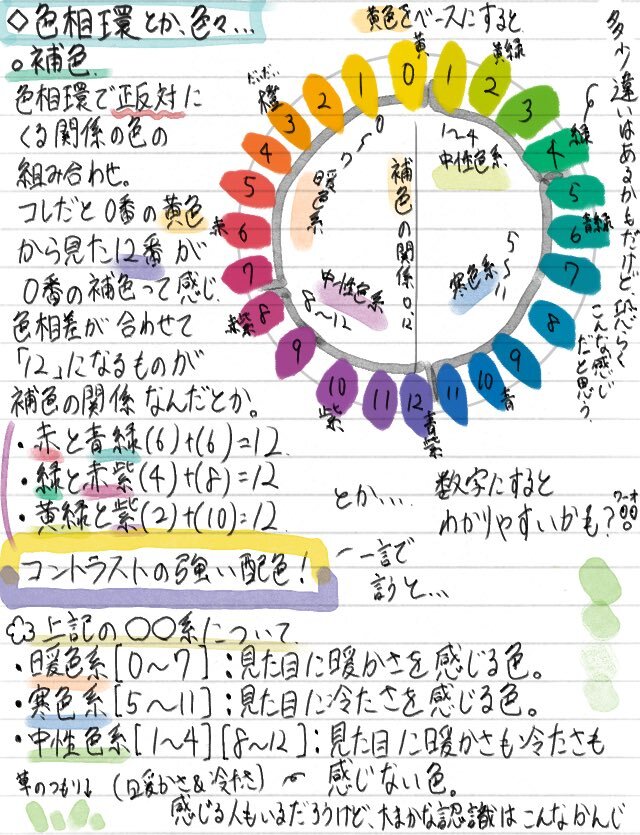 ◇色相環とか、色々…
○補色
色相環で正反対に
くる関係の色の
組み合わせ。
コレだと0番の黄色
から見た12番が
0番の補色って感じ.
色相差が合わせて
「12」になるものが
補色の関係なんだとか。
・赤と青緑(6)+(6)=12
・緑と赤紫(4)+(8)=12
・黄緑と紫(2)+(10)=12
コントラストの強い配色!
一言で
言うと…
黄色をベースにすると
黄
黄緑
緑
青緑
青
青紫
紫
赤紫
赤
橙
だいだい
0
1
2
3
4
5
6
7
8
9
10
11
12
11
10
9
8
7
6
5
4
3
2
1
1〜4
中性色系
補色の関係0,12
0〜7
暖色系
中性色系
8〜12
寒色系
5〜11
多少違いはあるかもだけど恐らく
こんな感じ
だと思う.
とか…
数字にすると
わかりやすいかも?
ワーオ
上記の〇〇系について
・暖色系[0〜7]:見た目に暖かさを感じる色。
・寒色系[5〜11]:見た目に冷たさを感じる色。
・中性色系[1〜4][8〜12]:見た目に暖かさも冷たさも
感じない色。
(暖かさ&冷たさ)
草のつもり↓
感じる人もいるだろうけど、大まかな認識はこんなかんじ